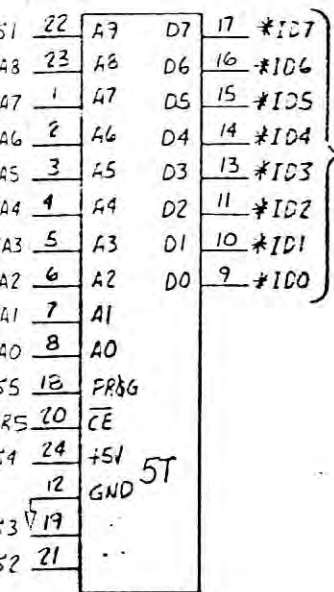 S1 22 A9 D7 17 *ID7
A8 23 A8 D6 16 *ID6
A7 1 A7 D5 15 *ID5
A6 2 A6 D4 14 *ID4
A5 3 A5 D3 13 *ID3
A4 4 A4 D2 11 *ID2
A3 5 A3 D1 10 *ID1
A2 6 A2 D0 9 *ID0
A1 7 A1
A0 8 A0
S5 18 PROG
RS 20 CE
S4 24 +5V 5T
12 GND
S3 19
S2 21